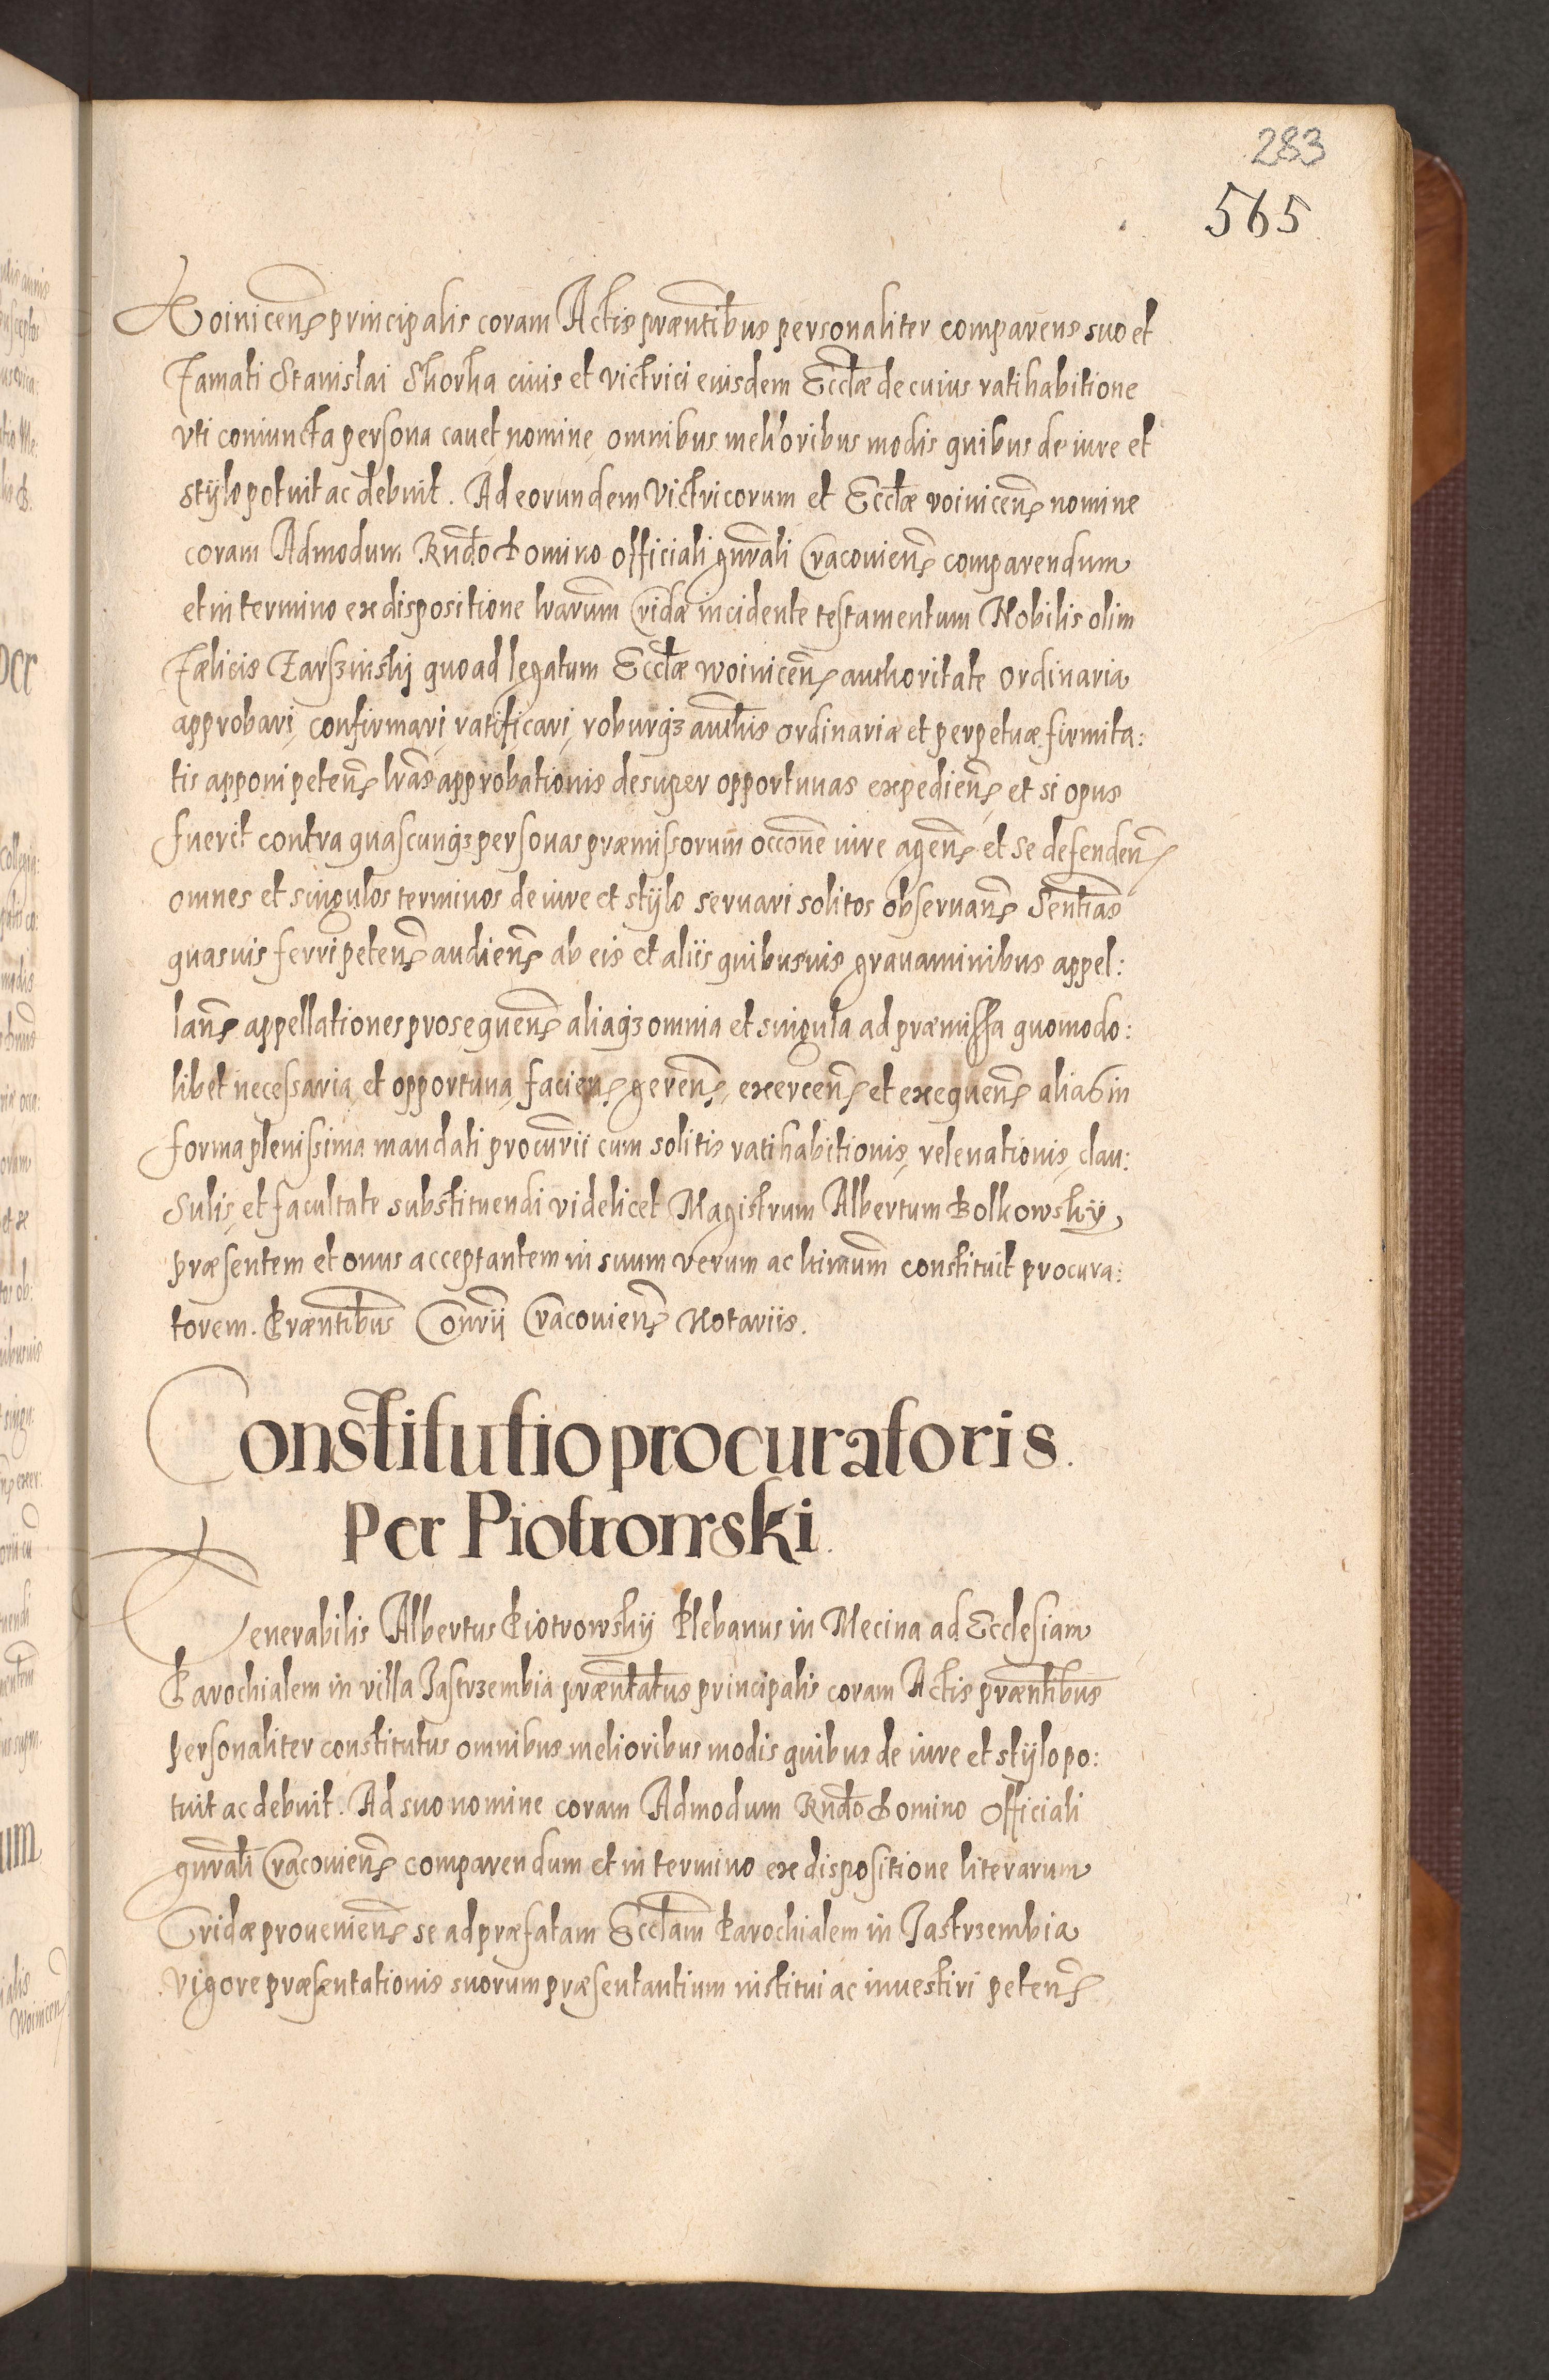 283
565
Woinicens principalis coram Actis præntibus personaliter comparens suo et
Famati Stanislai Skorka ciuis et victrici eiusdem Eccłæ de cuius ratihabitione
vti coniuncta persona cauet, nomine, omnibus melioribus modis quibus de iure et
stÿlo potuit ac debuit. Ad eorundem Victricorum et Eccłæ voinicens nomine
coram Admodum Rndo Domino officiali gnrali Cracouiens comparendum
et in termino ex dispositione lrarum Cridæ incidente testamentum Nobilis olim
Fælicis Tarszinskj quoad legatum Eccłæ woinicens authoritate ordinaria
approbari, confirmari, ratificari, roburqz authis ordinariæ et perpetuæ firmita:
tis apponi petens lras approbationis desuper opportunas expediens et si opus
fuerit contra quascunqz personas præmissorum occone iure agens et se defendens
omnes et singulos terminos de iure et stÿlo seruari solitos obseruans Sentias
quasuis ferri petens audiens ab eis et aliis quibusuis grauaminibus appel:
lans appellationes prosequens aliaqz omnia et singula ad præmissa quomodo:
libet necessaria, et opportuna, faciens gerens, exercens et exequens alias in
forma plenissima mandati procurii cum solitis ratihabitionis, releuationis, clau:
sulis, et facultate substituendi videlicet Magistrum Albertum Bolkowskÿ,
præsentem et onus acceptantem in suum verum ac ltimum constituit procura:
torem. Præntibus Conrii Cracouiens Notariis.
Constitutio procuratoris.
Per Piotrowski.
Venerabilis Albertus Piotrowskÿ Plebanus in Mecina ad Ecclesiam
Parochialem in villa Jastrzembia præntatus principalis coram Actis præntibus
personaliter constitutus omnibus melioribus modis quibus de iure et stÿlo po:
tuit ac debuit. Ad suo nomine coram Admodum Rndo Domino Officiali
gnrali Cracouiens comparendum et in termino ex dispositione literarum
Cridæ proueniens se ad præfatam Eccłam Parochialem in Jastrzembia
vigore præsentationis suorum præsentantium institui ac inuestiri petens